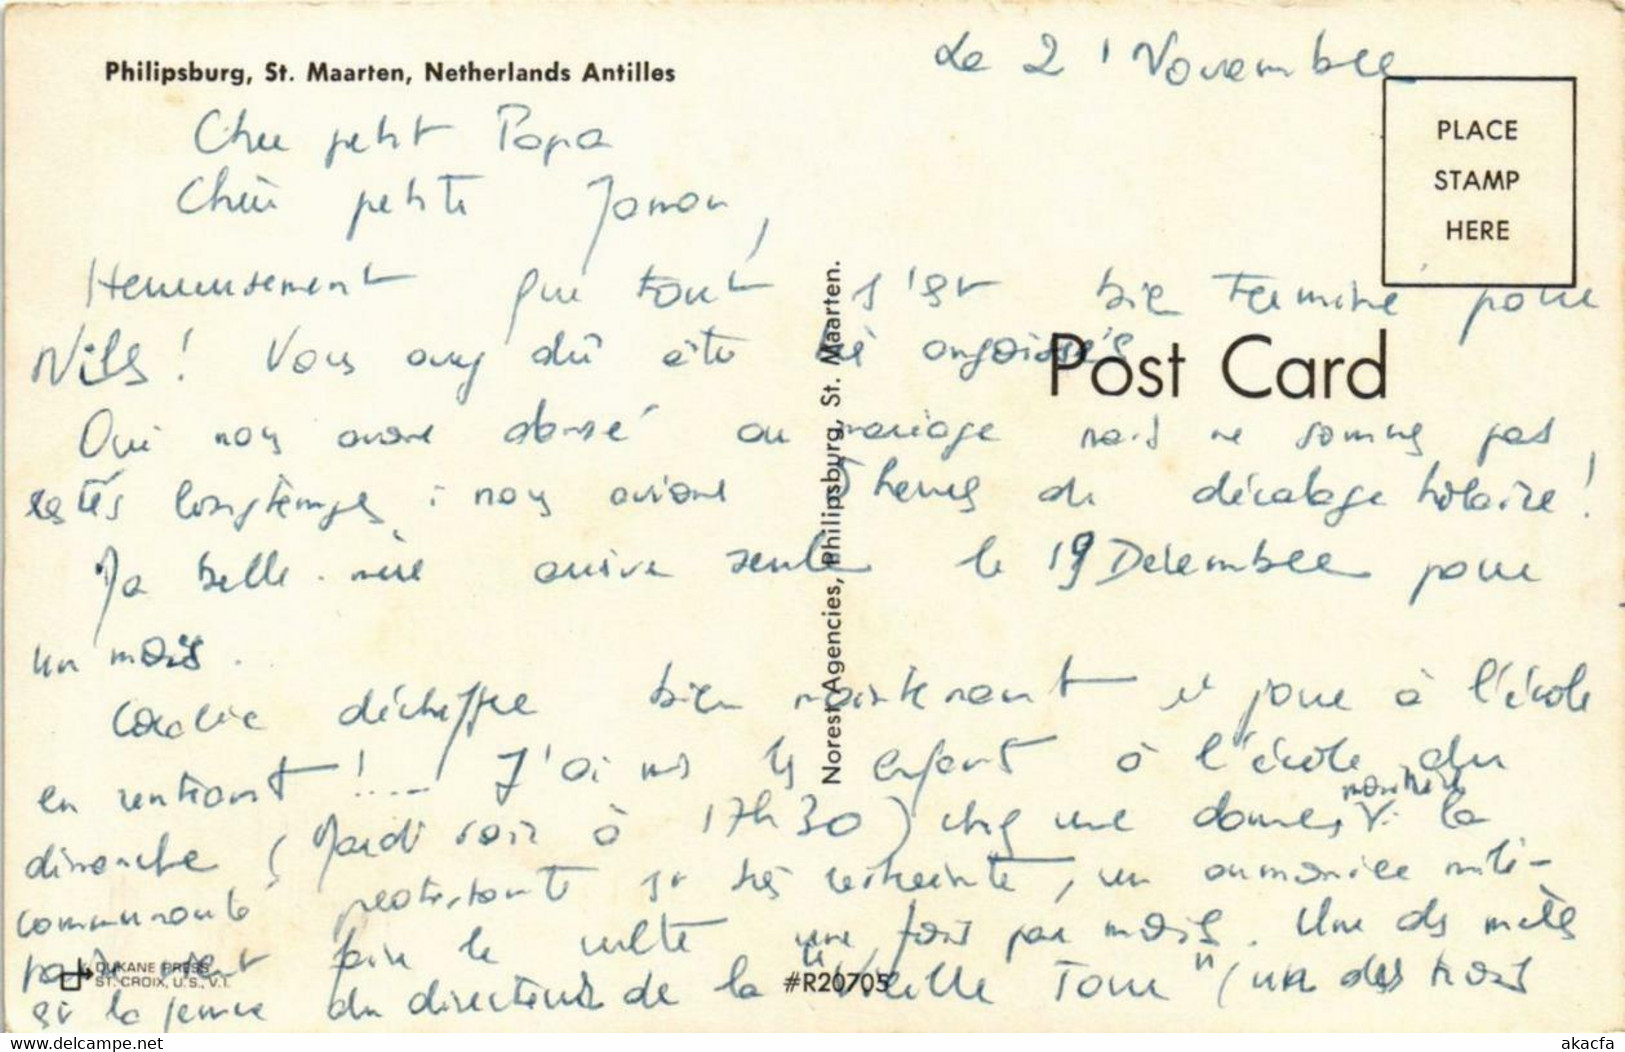 Philipsburg, St. Maarten, Netherlands Antilles
Le 21 Novembre
PLACE
STAMP
HERE
Cher petit Papa
Chère petite Maman,
Heureusement que tout s'est bien terminé pour
Nils ! Vous avez dû être très angoissés
Post Card
Oui nous avons dansé au mariage mais ne sommes pas
restés longtemps ; nous avions 5 heures de décalage horaire !
Ma belle-mère arrive seule le 19 Décembre pour
un mois.
Coralie déchiffre bien maintenant et joue à l'école
en rentrant !.... J'ai mis les enfants à l'école du
dimanche (Mardi soir à 17h30) chez une dame, la
communauté protestante est très restreinte, un aumonier mili-
vient faire le culte une fois par mois. Une des mères
est la femme du directeur de la "Vieille Tour" (un des trois
Norest Agencies, Philipsburg, St. Maarten.
DUKANE PRESS
ST. CROIX, U.S., V.I.
#R20705
the-world-collectors.com
akacfa